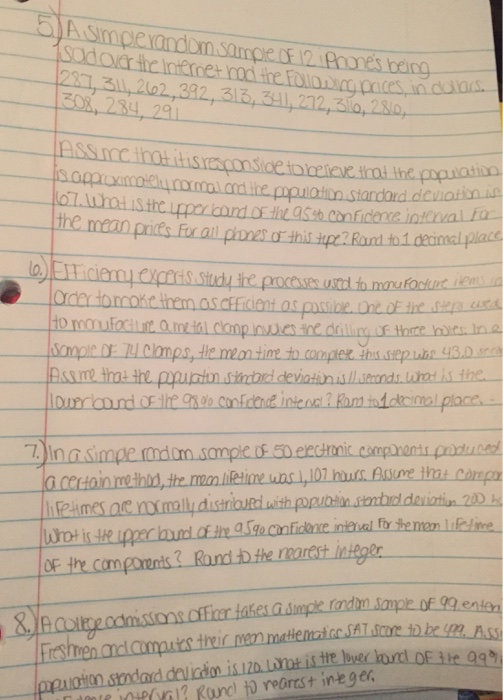 5) A simple random sample of 12 iPhone's being
sold over the Internet had the following prices, in dollars.
287, 311, 262, 392, 313, 341, 272, 316, 286,
308, 284, 291
Assume that it is responsible to believe that the population
is approximately normal and the population standard deviation is
67. What is the upper band of the 95% confidence interval for
the mean prices for all phones of this type? Round to 1 decimal place
6.) Efficiency experts study the processes used to manufacture items in
order to make them as efficient as possible. One of the steps used
to manufacture a metal clamp involves the drilling of three holes. In a
sample of 74 clamps, the mean time to complete this step was 43.0
Assume that the population standard deviation is 11 seconds. What is the
lower band of the 98% confidence interval? Round to 1 decimal place.
7.) In a simple random sample of 50 electronic components produced
a certain method, the mean lifetime was 1,107 hours. Assume that
lifetimes are normally distributed with population standard deviation 200
What is the upper bound of the 95% confidence interval for the mean lifetime
of the components? Round to the nearest integer.
8.) A college admissions officer takes a simple random sample of 99
freshmen and computes their mean mathematics SAT score to be
population standard deviation is 120. What is the lower bound of the 99%
interval? Round to nearest integer.